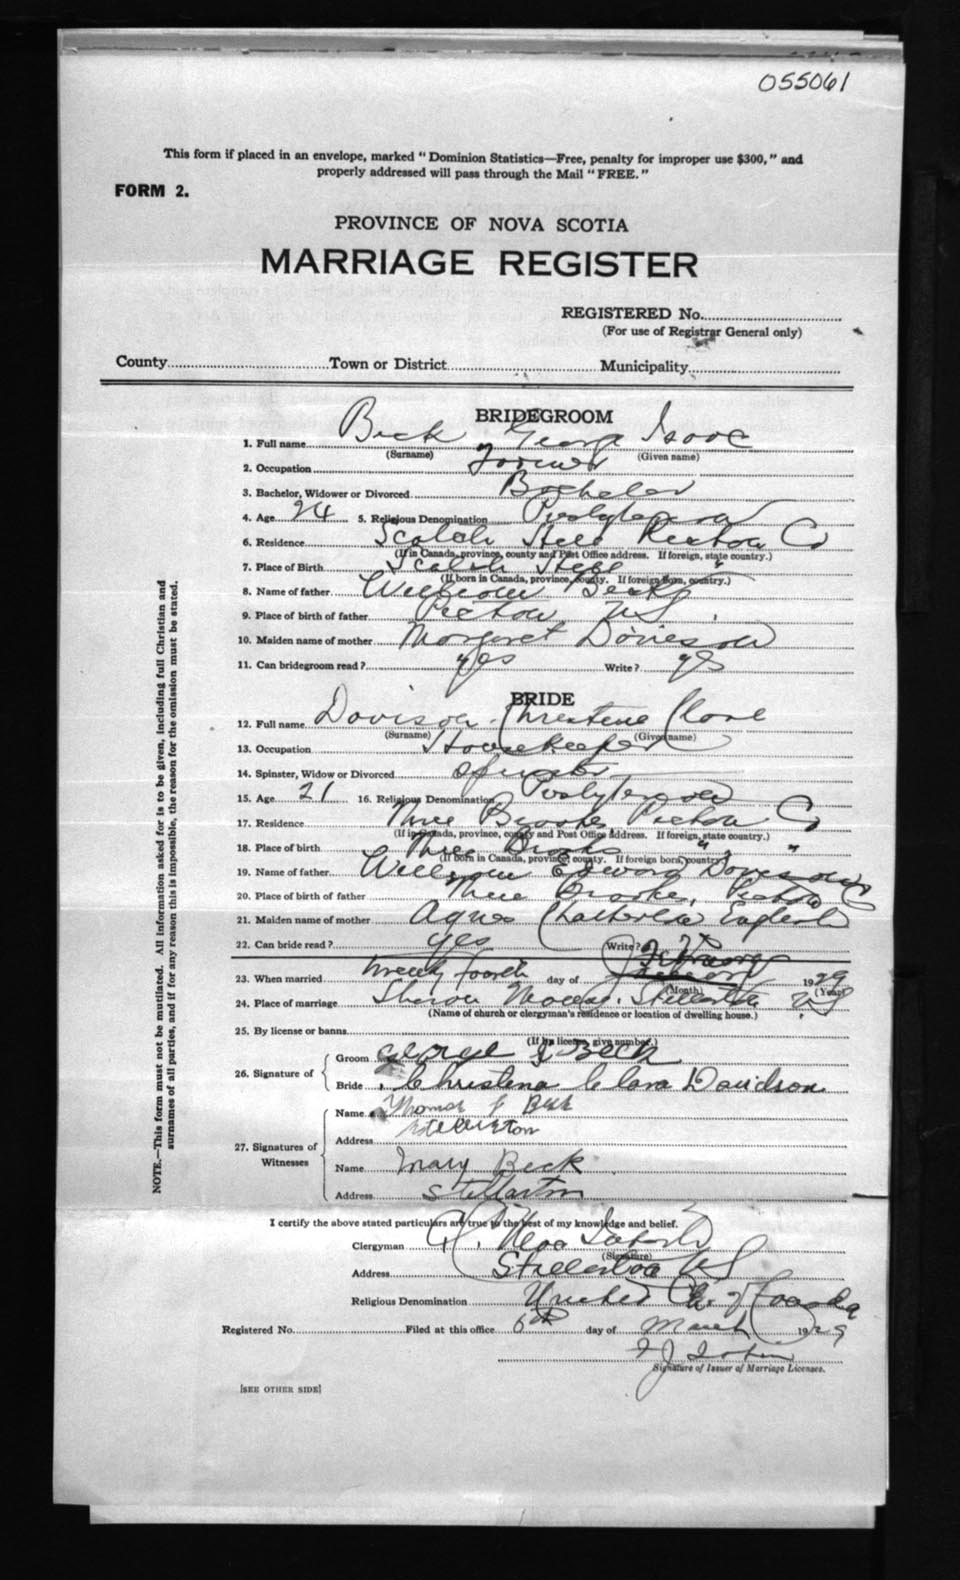 055061
This form if placed in an envelope, marked " Dominion Statistics—Free, penalty for improper use $300, " and
properly addressed will pass through the Mail " FREE. "
FORM 2.
PROVINCE OF NOVA SCOTIA
MARRIAGE REGISTER
REGISTERED No.
(For use of Registrar General only)
County Town or District Municipality
BRIDEGROOM
1. Full name Beck George Isaac
(Surname) (Given name)
2. Occupation Farmer
3. Bachelor, Widower or Divorced Bachelor
4. Age 24 5. Religious Denomination Presbyterian
6. Residence Scotch Hill Pictou Co
(If in Canada, province, county and Post Office address. If foreign, state country.)
7. Place of Birth Scotch Hill "
(If born in Canada, province, county. If foreign born, country.)
8. Name of father William Beck
9. Place of birth of father Pictou NS
10. Maiden name of mother Margaret Davison
11. Can bridegroom read? yes Write? yes
BRIDE
12. Full name Davison Christene Clare
(Surname) (Given name)
13. Occupation Housekeeper
14. Spinster, Widow or Divorced Spinster
15. Age 21 16. Religious Denomination Presbyterian
17. Residence Three Brooks Pictou Co
(If in Canada, province, county and Post Office address. If foreign, state country.)
18. Place of birth Three Brooks " "
(If born in Canada, province, county. If foreign born, country)
19. Name of father William Edward Davison
20. Place of birth of father Three Brooks, Pictou
21. Maiden name of mother Agnes Charlotte English
22. Can bride read? yes Write?
23. When married twenty fourth day of February 1929
(Month) (Year)
24. Place of marriage Sharon Manse, Stellarton NS
(Name of church or clergyman's residence or location of dwelling house.)
25. By license or banns
(If by license, give number.)
26. Signature of
Groom George I Beck
Bride Christena Clara Davidson
27. Signatures of
Witnesses
Name Thomas J Beck
Address Stellarton
Name Mary Beck
Address Stellarton
I certify the above stated particulars are true to the best of my knowledge and belief.
Clergyman
(Signature)
Address Stellarton NS
Religious Denomination United Ch. of Canada
Registered No. Filed at this office 6th day of March 1929
Signature of Issuer of Marriage Licenses.
[SEE OTHER SIDE]
NOTE.—This form must not be mutilated. All information asked for is to be given, including full Christian and
surnames of all parties, and if for any reason this is impossible, the reason for the omission must be stated.